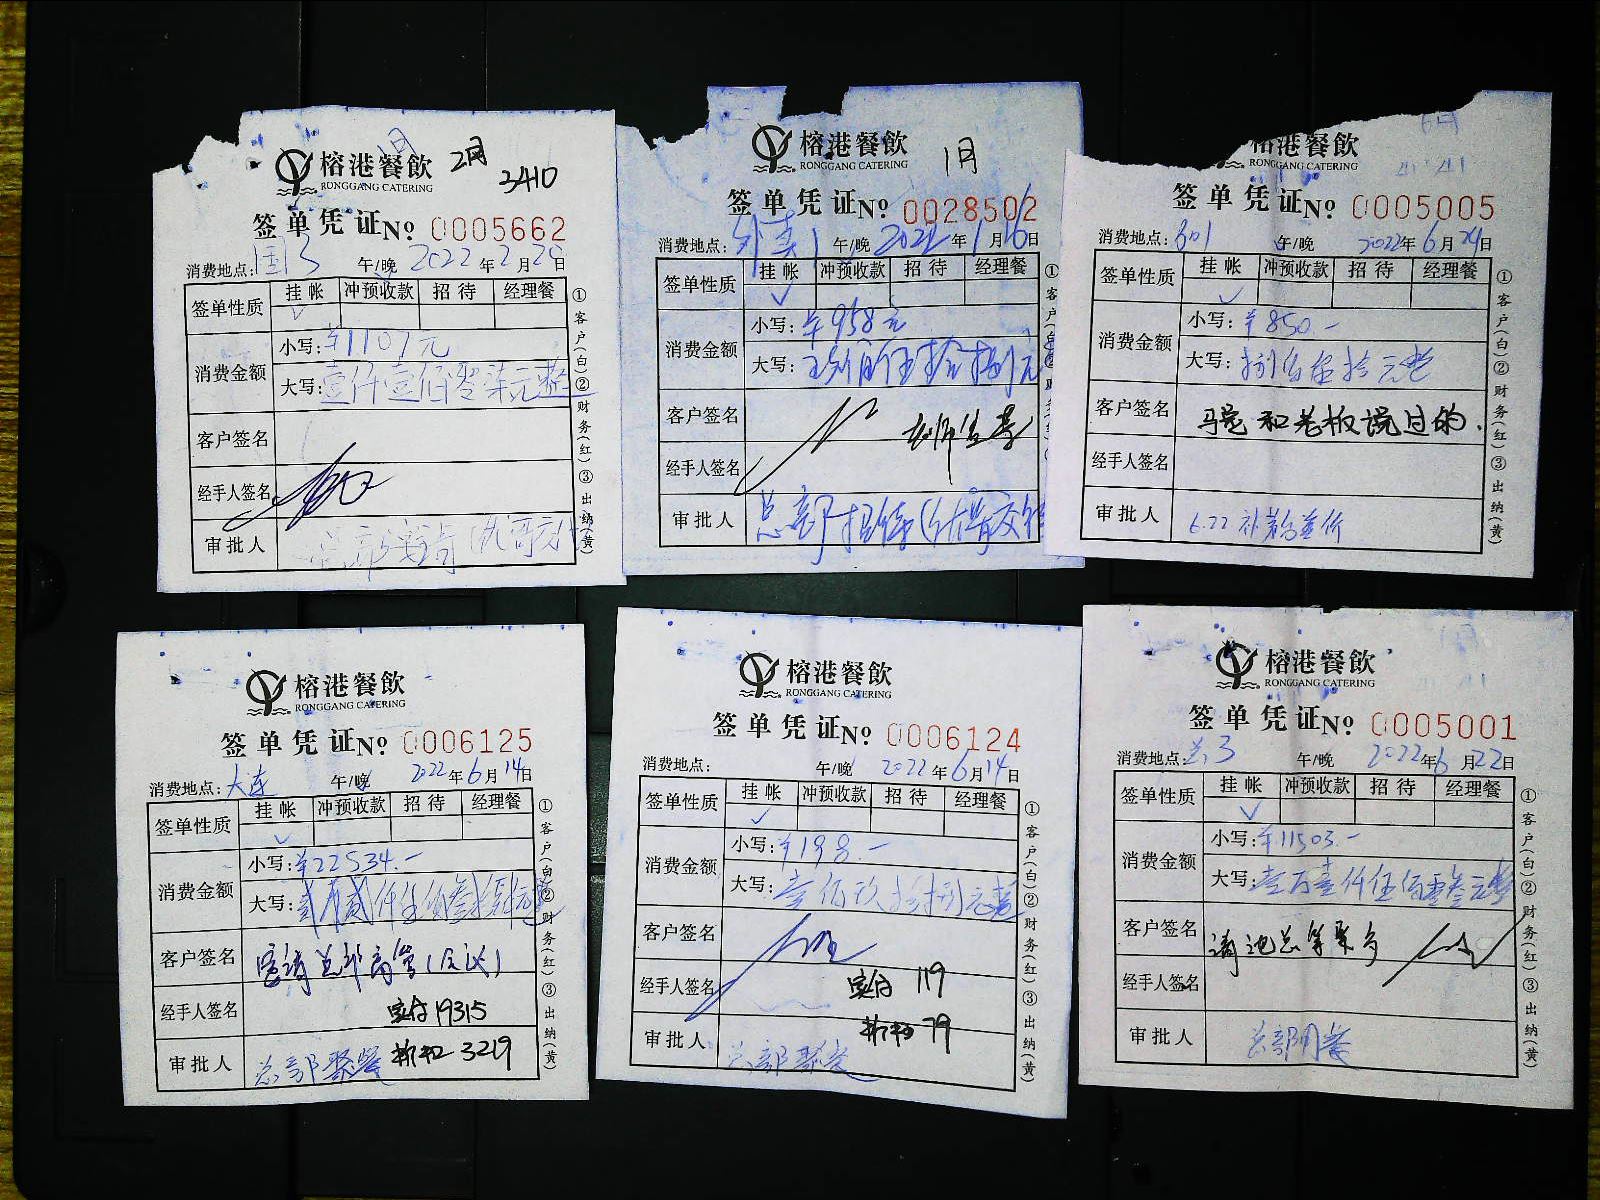 2月
3410
榕港餐飲
RONGGANG CATERING
签单凭证 No 0005662
消费地点: 国3 午/晚 2022年2月20日
签单性质 挂帐 冲预收款 招待 经理餐
√
消费金额 小写: ¥1107元
大写: 壹仟壹佰零柒元整
客户签名
经手人签名
审批人 总部
①客户(白)②财务(红)③出纳(黄)
榕港餐飲
RONGGANG CATERING
1月
签单凭证 No 0028502
消费地点: 外卖1 午/晚 2022年1月16日
签单性质 挂帐 冲预收款 招待 经理餐
√
消费金额 小写: ¥958元
大写: 玖佰伍拾捌元
客户签名
经手人签名
审批人 总部招待
①客户
榕港餐飲
RONGGANG CATERING
签单凭证 No 0005005
消费地点: 301 午/晚 2022年6月24日
签单性质 挂帐 冲预收款 招待 经理餐
√
消费金额 小写: ¥850.-
大写: 捌佰伍拾元整
客户签名 和老板说过的.
经手人签名
审批人 6.22 补差价
①客户(白)②财务(红)③出纳(黄)
榕港餐飲
RONGGANG CATERING
签单凭证 No 0006125
消费地点: 大连 午/晚 2022年6月14日
签单性质 挂帐 冲预收款 招待 经理餐
√
消费金额 小写: ¥22534.-
大写: 贰万贰仟伍佰叁拾肆元整
客户签名 宴请总部高管(会议)
经手人签名 实付 19315
审批人 总部聚餐 折扣 3219
①客户(白)②财务(红)③出纳(黄)
榕港餐飲
RONGGANG CATERING
签单凭证 No 0006124
消费地点: 午/晚 2022年6月14日
签单性质 挂帐 冲预收款 招待 经理餐
√
消费金额 小写: ¥198.-
大写: 壹佰玖拾捌元整
客户签名
经手人签名 实付 119
审批人 总部聚餐 折扣 79
①客户(白)②财务(红)③出纳(黄)
榕港餐飲
RONGGANG CATERING
签单凭证 No 0005001
消费地点: 兰3 午/晚 2022年6月22日
签单性质 挂帐 冲预收款 招待 经理餐
√
消费金额 小写: ¥11503.-
大写: 壹万壹仟伍佰零叁元整
客户签名 请池总等聚餐
经手人签名
审批人 总部用餐
①客户(白)②财务(红)③出纳(黄)